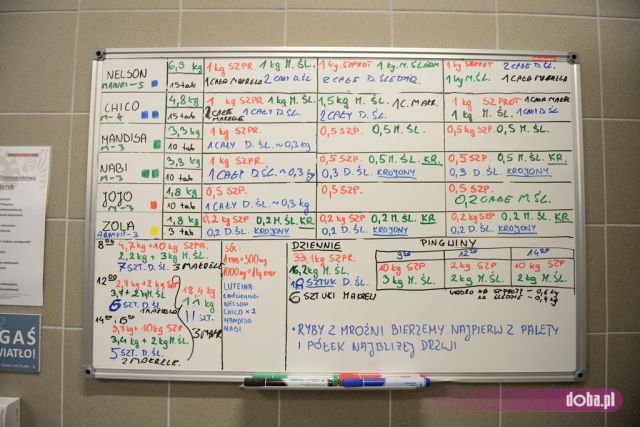 NELSON
MANATI-5
6,3 kg
15 tab
1 kg SZPR. 1 kg M. ŚL.
1 CAŁA MAKRELA 2 CAŁY D. ŚL
1 kg. SZPROT 1 kg. M. ŚLEDZIA
2 CAŁE D. ŚLEDZIE.
1 kg SZPROT 2 CAŁE D. ŚL.
1 kg M. ŚL. 1 CAŁA MAKRELA
CHICO
M-4
4,8 kg
15 tab
1 kg SZPR. 1 kg M. ŚL.
2 CAŁE MAKRELE 1 CAŁY D. ŚL
1,5 kg M. ŚL. 1 C. MAKR.
2 CAŁY D. ŚL.
1 kg SZPROT 1 CAŁA MAKR.
1 kg M. ŚL. 1 CAŁY D. ŚL
MANDISA
M-3
3,3 kg
10 tab
1 kg SZPR.
1 CAŁY D. ŚL. ~0,3 kg
0,5 SZPR. 0,5 M. ŚL.
0,5 kg SZPR. 0,5 M. ŚL.
NABI
M-3
3,3 kg
10 tab
1 kg SZPR.
1 CAŁY D. ŚL. ~0,3 kg
0,5 SZPR. 0,5 M. ŚL. KR.
0,3 D. ŚL. KROJONY
0,5 SZPR. 0,5 M. ŚL. KR.
0,3 D. ŚL. KROJONY
JOJO
M-3
1,8 kg
10 tab
0,5 SZPR.
1 CAŁY D. ŚL. ~0,3 kg
0,5 SZPR.
0,5 SZPR.
0,2 CAŁE M. ŚL
ZOLA
-3
1,8 kg
3 tab
0,2 kg SZPR. 0,2 M. ŚL. KR
0,2 D. ŚL. KROJONY
0,2 kg SZPR. 0,2 M. ŚL. KR
0,2 D. ŚL. KROJONY
0,2 kg SZPR. 0,2 M. ŚL. KR
0,2 D. ŚL. KROJONY
8
4,7 kg + 10 kg SZPR.
2,2 kg + 3 kg M. ŚL.
7 SZT. D. ŚL. 3 MAKRELE
12
2,7 kg + 2 kg SZPR
3,7 + 2 kg M. ŚL
6 SZT. D. ŚL. 1 MAKRELA
14
3,7 kg + 10 kg SZPR
3,4 kg + 2 kg M. ŚL.
5 SZT D. ŚL.
2 MAKRELE.
18,4 kg
SZT.
3 MAKR
SÓL:
300mg
1000mg = 1 kg
LUTEINA:
codziennie
NELSON
CHICO × 2
MANDISA
NABI
DZIENNIE
33,1 kg SZPR.
16,2 kg M. ŚL.
18 SZTUK D. ŚL.
6 SZTUKI MAKRELI
PINGWINY
9 30
12
14
10 kg SZP
3 kg M. ŚL.
2 kg SZP
2 kg M. ŚL.
10 kg SZP
2 kg M. ŚL.
WIADRO NA SZPROTY - 0,6 kg
NA ŚLEDZIE - 0,4 kg
• RYBY Z MROŹNI BIERZEMY NAJPIERW Z PALETY
I PÓŁEK NAJBLIŻEJ DRZWI
GAŚ
WIATŁO!
doba.pl